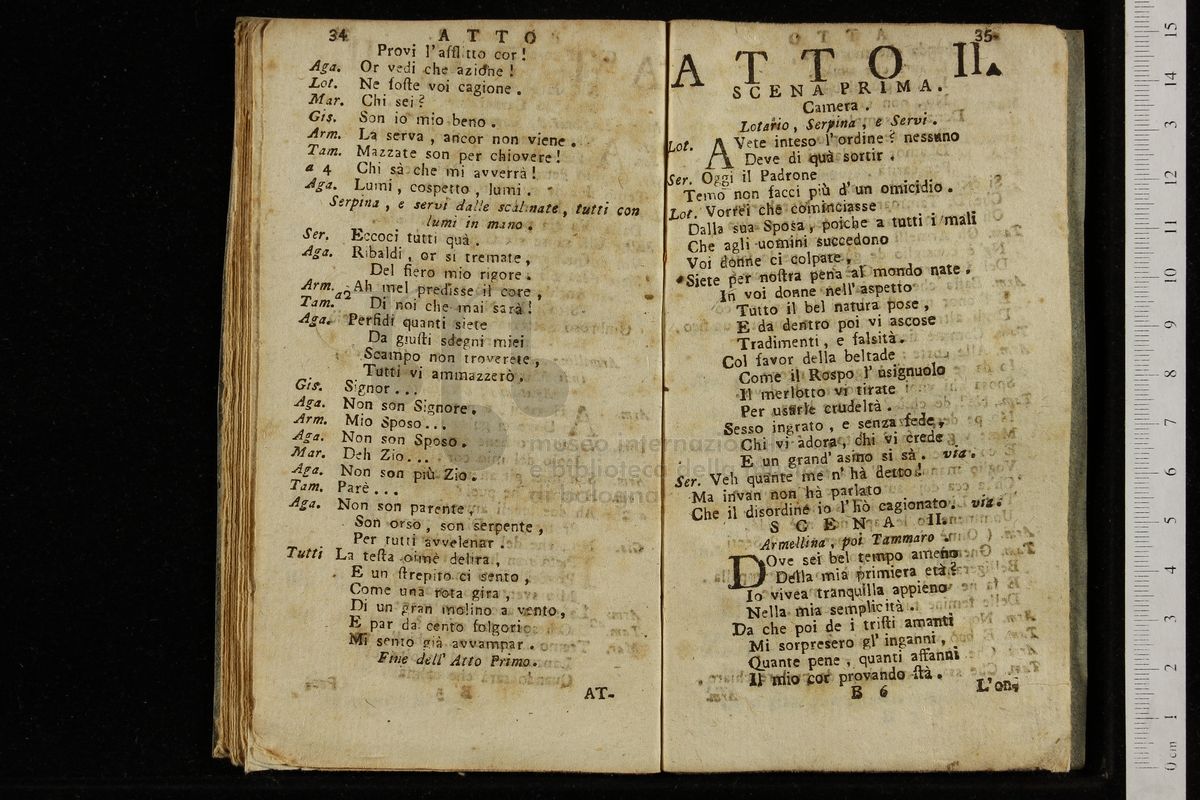 34 ATTO
Provi l'afflitto cor!
Aga. Or vedi che azione!
Lot. Ne foste voi cagione.
Mar. Chi sei?
Gis. Son io mio beno.
Arm. La serva, ancor non viene.
Tam. Mazzate son per chiovere!
a 4 Chi sà che mi avverrà!
Aga. Lumi, cospetto, lumi.
Serpina, e servi dalle scalinate, tutti con
lumi in mano.
Ser. Eccoci tutti quà.
Aga. Ribaldi, or si tremate,
Del fiero mio rigore.
Arm. a2 Ah mel predisse il core,
Tam. Di noi che mai sarà!
Aga. Perfidi quanti siete
Da giusti sdegni miei
Scampo non troverete,
Tutti vi ammazzerò.
Gis. Signor...
Aga. Non son Signore.
Arm. Mio Sposo...
Aga. Non son Sposo.
Mar. Deh Zio...
Aga. Non son più Zio.
Tam. Parè...
Aga. Non son parente,
Son orso, son serpente,
Per tutti avvelenar.
Tutti La testa oimè delira,
E un strepito ci sento,
Come una rota gira,
Di un gran molino a vento,
E par da cento folgori
Mi sento già avvampar.
Fine dell' Atto Primo.
AT-
35
ATTO II.
SCENA PRIMA.
Camera.
Lotario, Serpina, e Servi.
Lot. AVete inteso l'ordine? nessuno
Deve di quà sortir.
Ser. Oggi il Padrone
Temo non facci più d'un omicidio.
Lot. Vorrei che cominciasse
Dalla sua Sposa, poiche a tutti i mali
Che agli uomini succedono
Voi donne ci colpate,
Siete per nostra pena al mondo nate.
In voi donne nell' aspetto
Tutto il bel natura pose,
E da dentro poi vi ascose
Tradimenti, e falsità.
Col favor della beltade
Come il Rospo l'usignuolo
Il merlotto vi tirate
Per usarle crudeltà.
Sesso ingrato, e senza fede,
Chi vi adora, chi vi crede
E un grand' asino si sà. via.
Ser. Veh quante me n'hà detto!
Ma invan non hà parlato
Che il disordine io l'hò cagionato. via.
SCENA II.
Armellina, poi Tammaro.
DOve sei bel tempo ameno
Della mia primiera età?
Io vivea tranquilla appieno
Nella mia semplicità.
Da che poi de i tristi amanti
Mi sorpresero gl' inganni,
Quante pene, quanti affanni
Il mio cor provando stà.
B 6 L'on-
museo internazionale
e biblioteca della
di bologna
0 cm 1 2 3 4 5 6 7 8 9 10 11 12 13 14 15